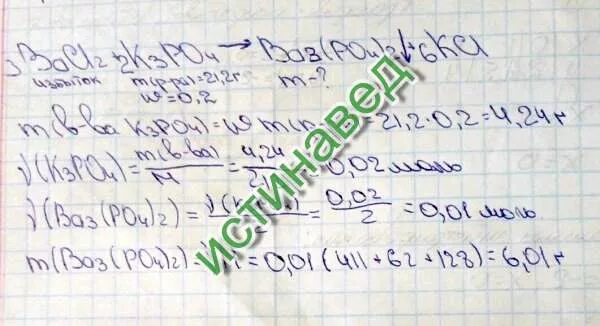 3BaCl₂ + 2K₃PO₄ → Ba₃(PO₄)₂↓ + 6KCl
избыток m(р-ра)=21,2г m-?
w=0,2
m(в-ва K₃PO₄) = w m( = 21,2·0,2 = 4,24 г
ν(K₃PO₄) = m(в-ва)/M = 4,24/21 = 0,02 моль
ν(Ba₃(PO₄)₂) = ν(K /2 = 0,02/2 = 0,01 моль
m(Ba₃(PO₄)₂) = = 0,01(411+62+128) = 6,01 г
ИСТИНАВЕД